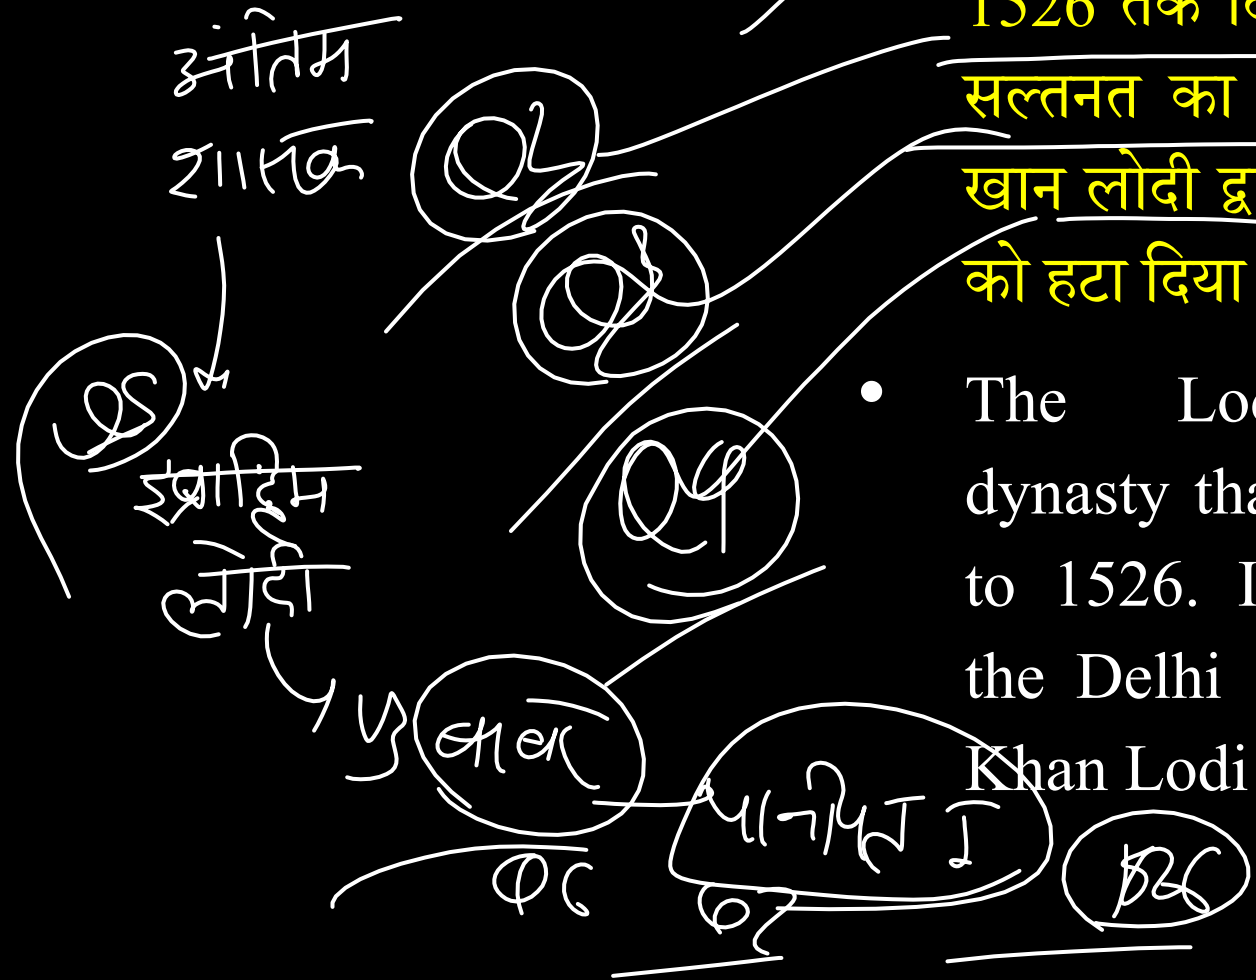 अंतिम
शासक
Q2
Q3
Q4
Q5
इब्राहिम
लोदी
बाबर
पानीपत I
1526
Q6
Q7
1526 तक
सल्तनत का
खान लोदी द्व
को हटा दिया
• The Lod
dynasty tha
to 1526. I
the Delhi
Khan Lodi